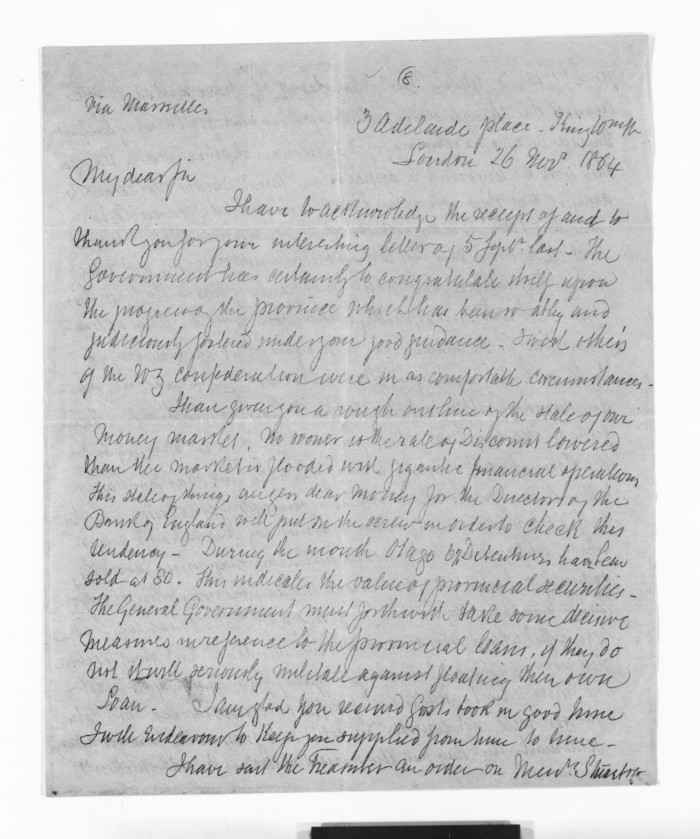 8.
Via Marseilles
3 Adelaide place - King
London 26 Novr. 1864
My dear Sir
I have to acknowledge the receipt of and to
thank you for your interesting letter of 5 Septr. last - The
Government has certainly to congratulate itself upon
the progress of the province which has been so ably and
judiciously fostered under your good guidance - I wish others
of the NZ confederation were in as comfortable circumstances -
I have given you a rough outline of the state of our
Money market. No sooner is the rate of Discount lowered
than the market is flooded with gigantic financial operations
This state of things augers dear money for the Directors of the
Bank of England will put on the screw in order to check this
tendency - During the month Otago 6% Debentures have been
sold at 80. This indicates the value of provincial securities -
The General Government must forthwith take some decisive
measures in reference to the provincial loans, if they do
not it will seriously militate against floating their own
Loan - I am glad you received book in good time
I will endeavour to keep you supplied from time to time -
I have sent the Treasurer an order on Messrs.